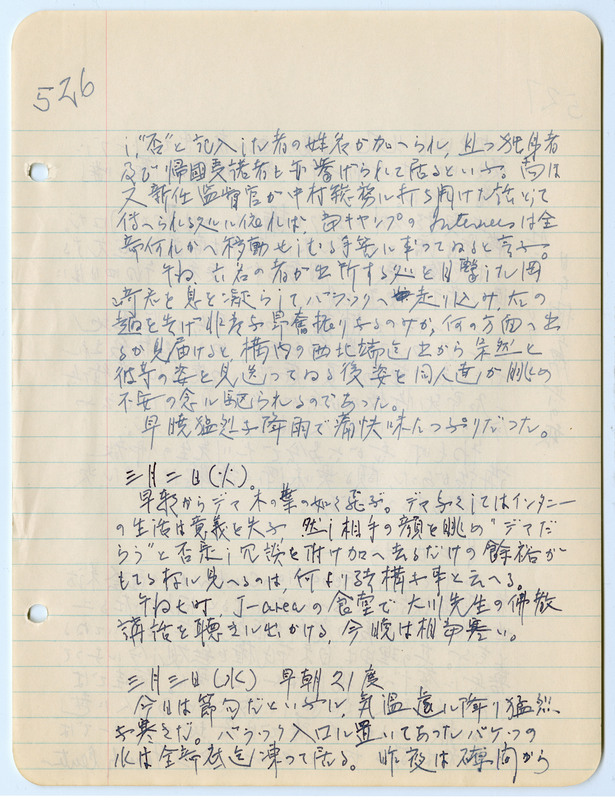 526
し、"否"と記入した者の姓名が加へられ、且つ独身者
及び帰國受諾者も亦挙げられて居るといふ。尚ほ
又新任監督官が中村総務に打ち開けた話として
伝へられる処に依れば、當キャンプの Internees は全
部何れかへ移動せしむる手筈に
午后 六名の者が出所する処を目撃した岡
崎君を息を凝らしてバラックへ走り込み、右の
趣を告げ非常な昂奮振りなるのみか、何の方面へ出
るか見届けると、構内の西北端迄出から呆然と
彼等の姿を見送つてゐる後姿を同人達が眺め
不安の念に駆られるのであつた。
早暁猛烈な降雨で痛快味たつぷりだつた。
三月二日(火)。
早朝からデマ 木の葉の如く飛ぶ。デマなくしてはインタニー
の生活は意義を失ふ、然し相手の顔を眺め"デマだ
らう"と否定し冗談を附け加へ去るだけの餘裕が
もてる 見へるのは、何より結構な事と云へる。
午后七時、J-areaの食堂で大川先生の佛教
講話を聴きに出かける、今晩は相當寒い。
三月三日(水) 早朝21度
今日は節句だといふに、気温遽に降り猛烈
な寒さだ。バラック入口に置いてあつたバケツの
水は全部底迄凍つて居る。昨夜は 間から